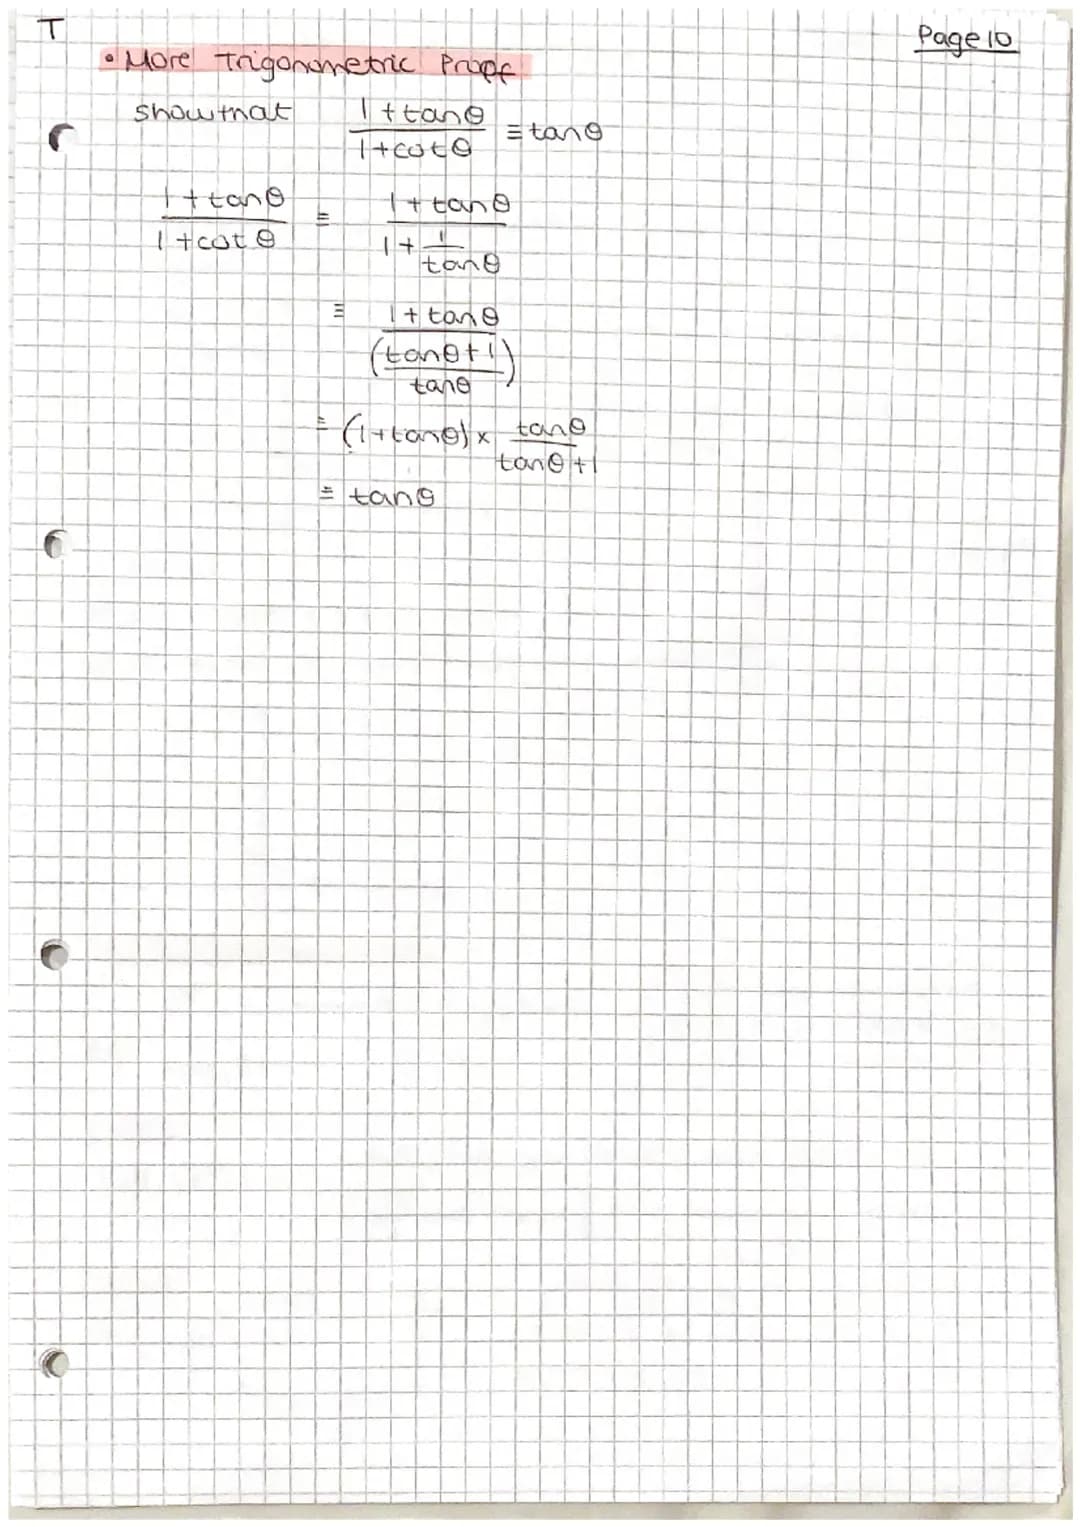 T
Page 10
• More Trigonometric Proof
show that (1 + tanθ)/(1 + cotθ) ≡ tanθ
(1 + tanθ)/(1 + cotθ) ≡ (1 + tanθ)/(1 + 1/tanθ)
≡ (1 + tanθ)/((tanθ + 1)/tanθ)
≡ (1 + tanθ) × tanθ/(tanθ + 1)
≡ tanθ